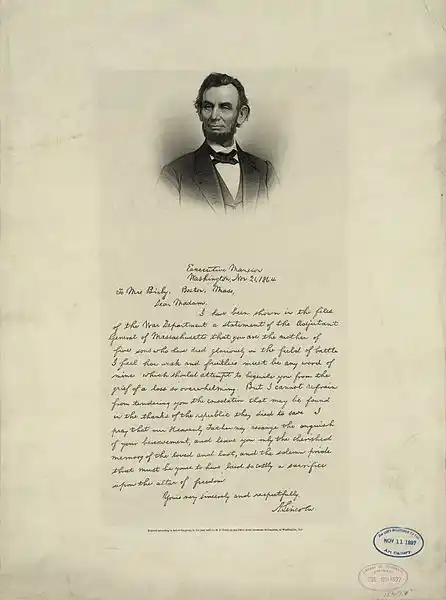 Executive Mansion
Washington, Nov 21, 1864
To Mrs Bixby, Boston, Mass,
Dear Madam.
I have been shown in the files
of the War Department a statement of the Adjutant
General of Massachusetts that you are the mother of
five sons who have died gloriously on the field of battle
I feel how weak and fruitless must be any word of
mine which should attempt to beguile you from the
grief of a loss so overwhelming. But I cannot refrain
from tendering you the consolation that may be found
in the thanks of the republic they died to save I
pray that our Heavenly Father may assuage the anguish
of your bereavement, and leave you only the cherished
memory of the loved and lost, and the solemn pride
that must be yours to have laid so costly a sacrifice
upon the altar of freedom
Yours very sincerely and respectfully
A. Lincoln
NOV 11 1897